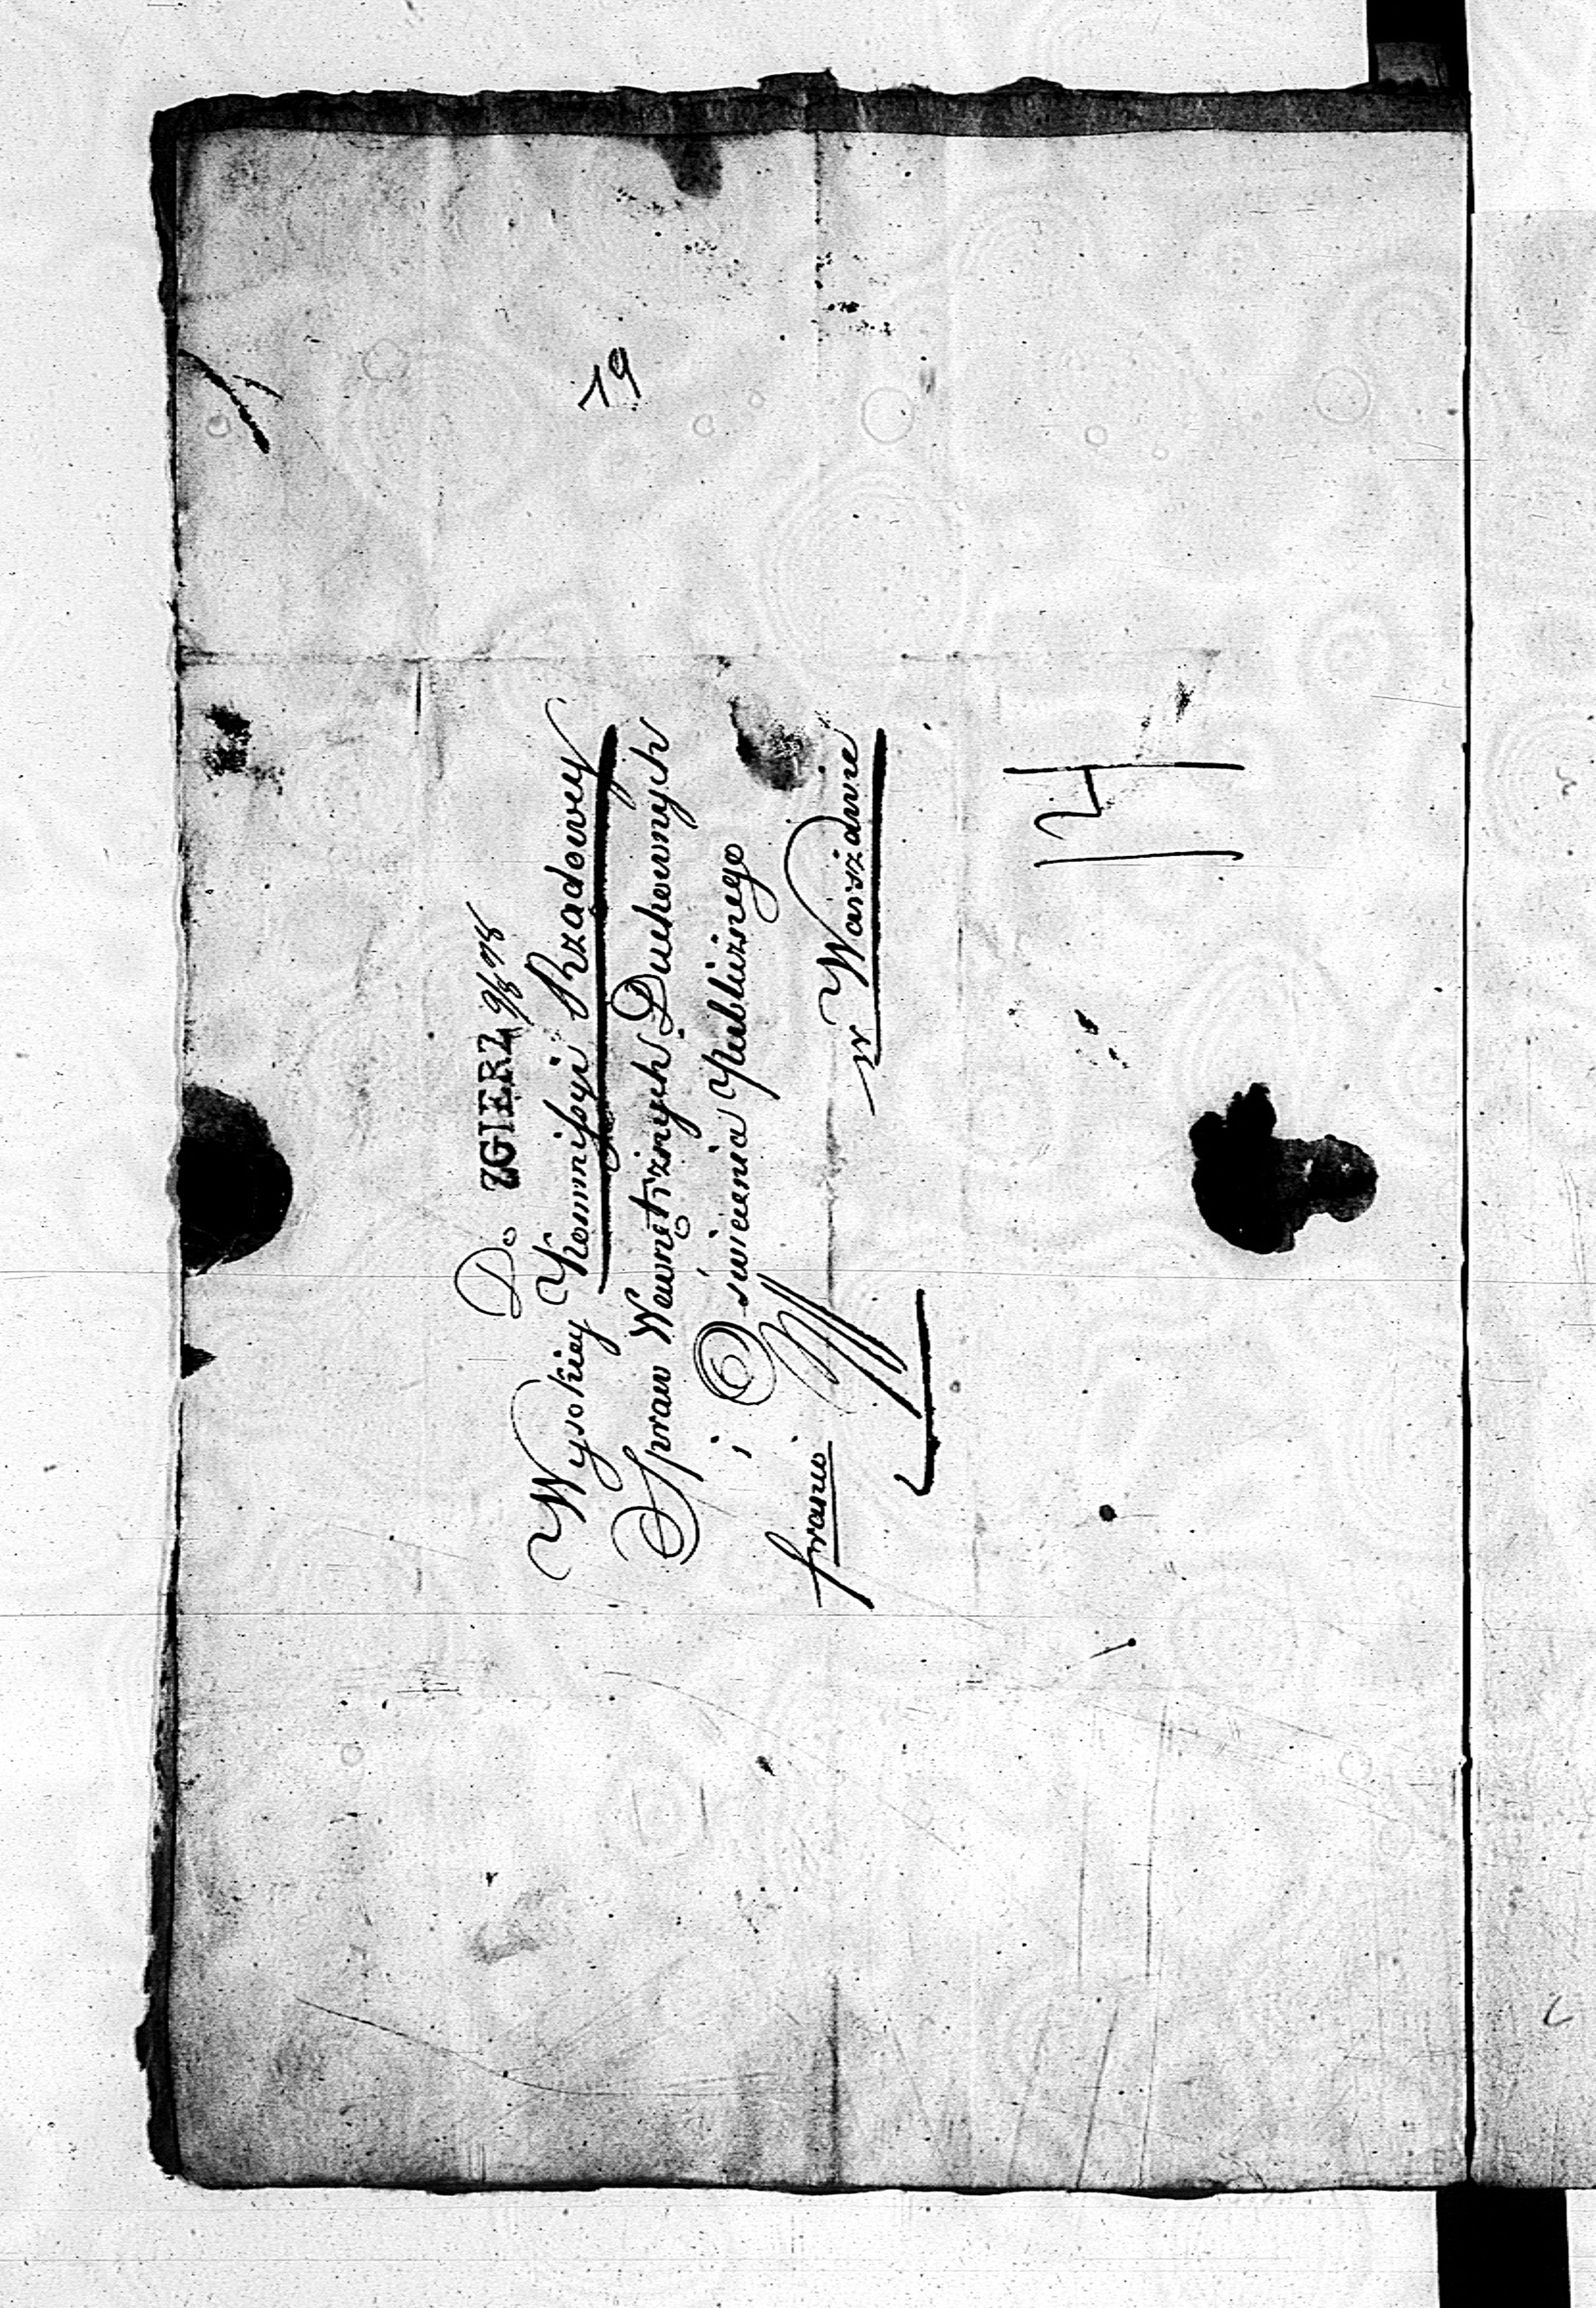 19
ZGIERZ
Do
Wysokiey Kommissyi Rządowey
Spraw Wewnętrznych Duchownych
i Oświecenia Publicznego
w Warszawie
franco
14